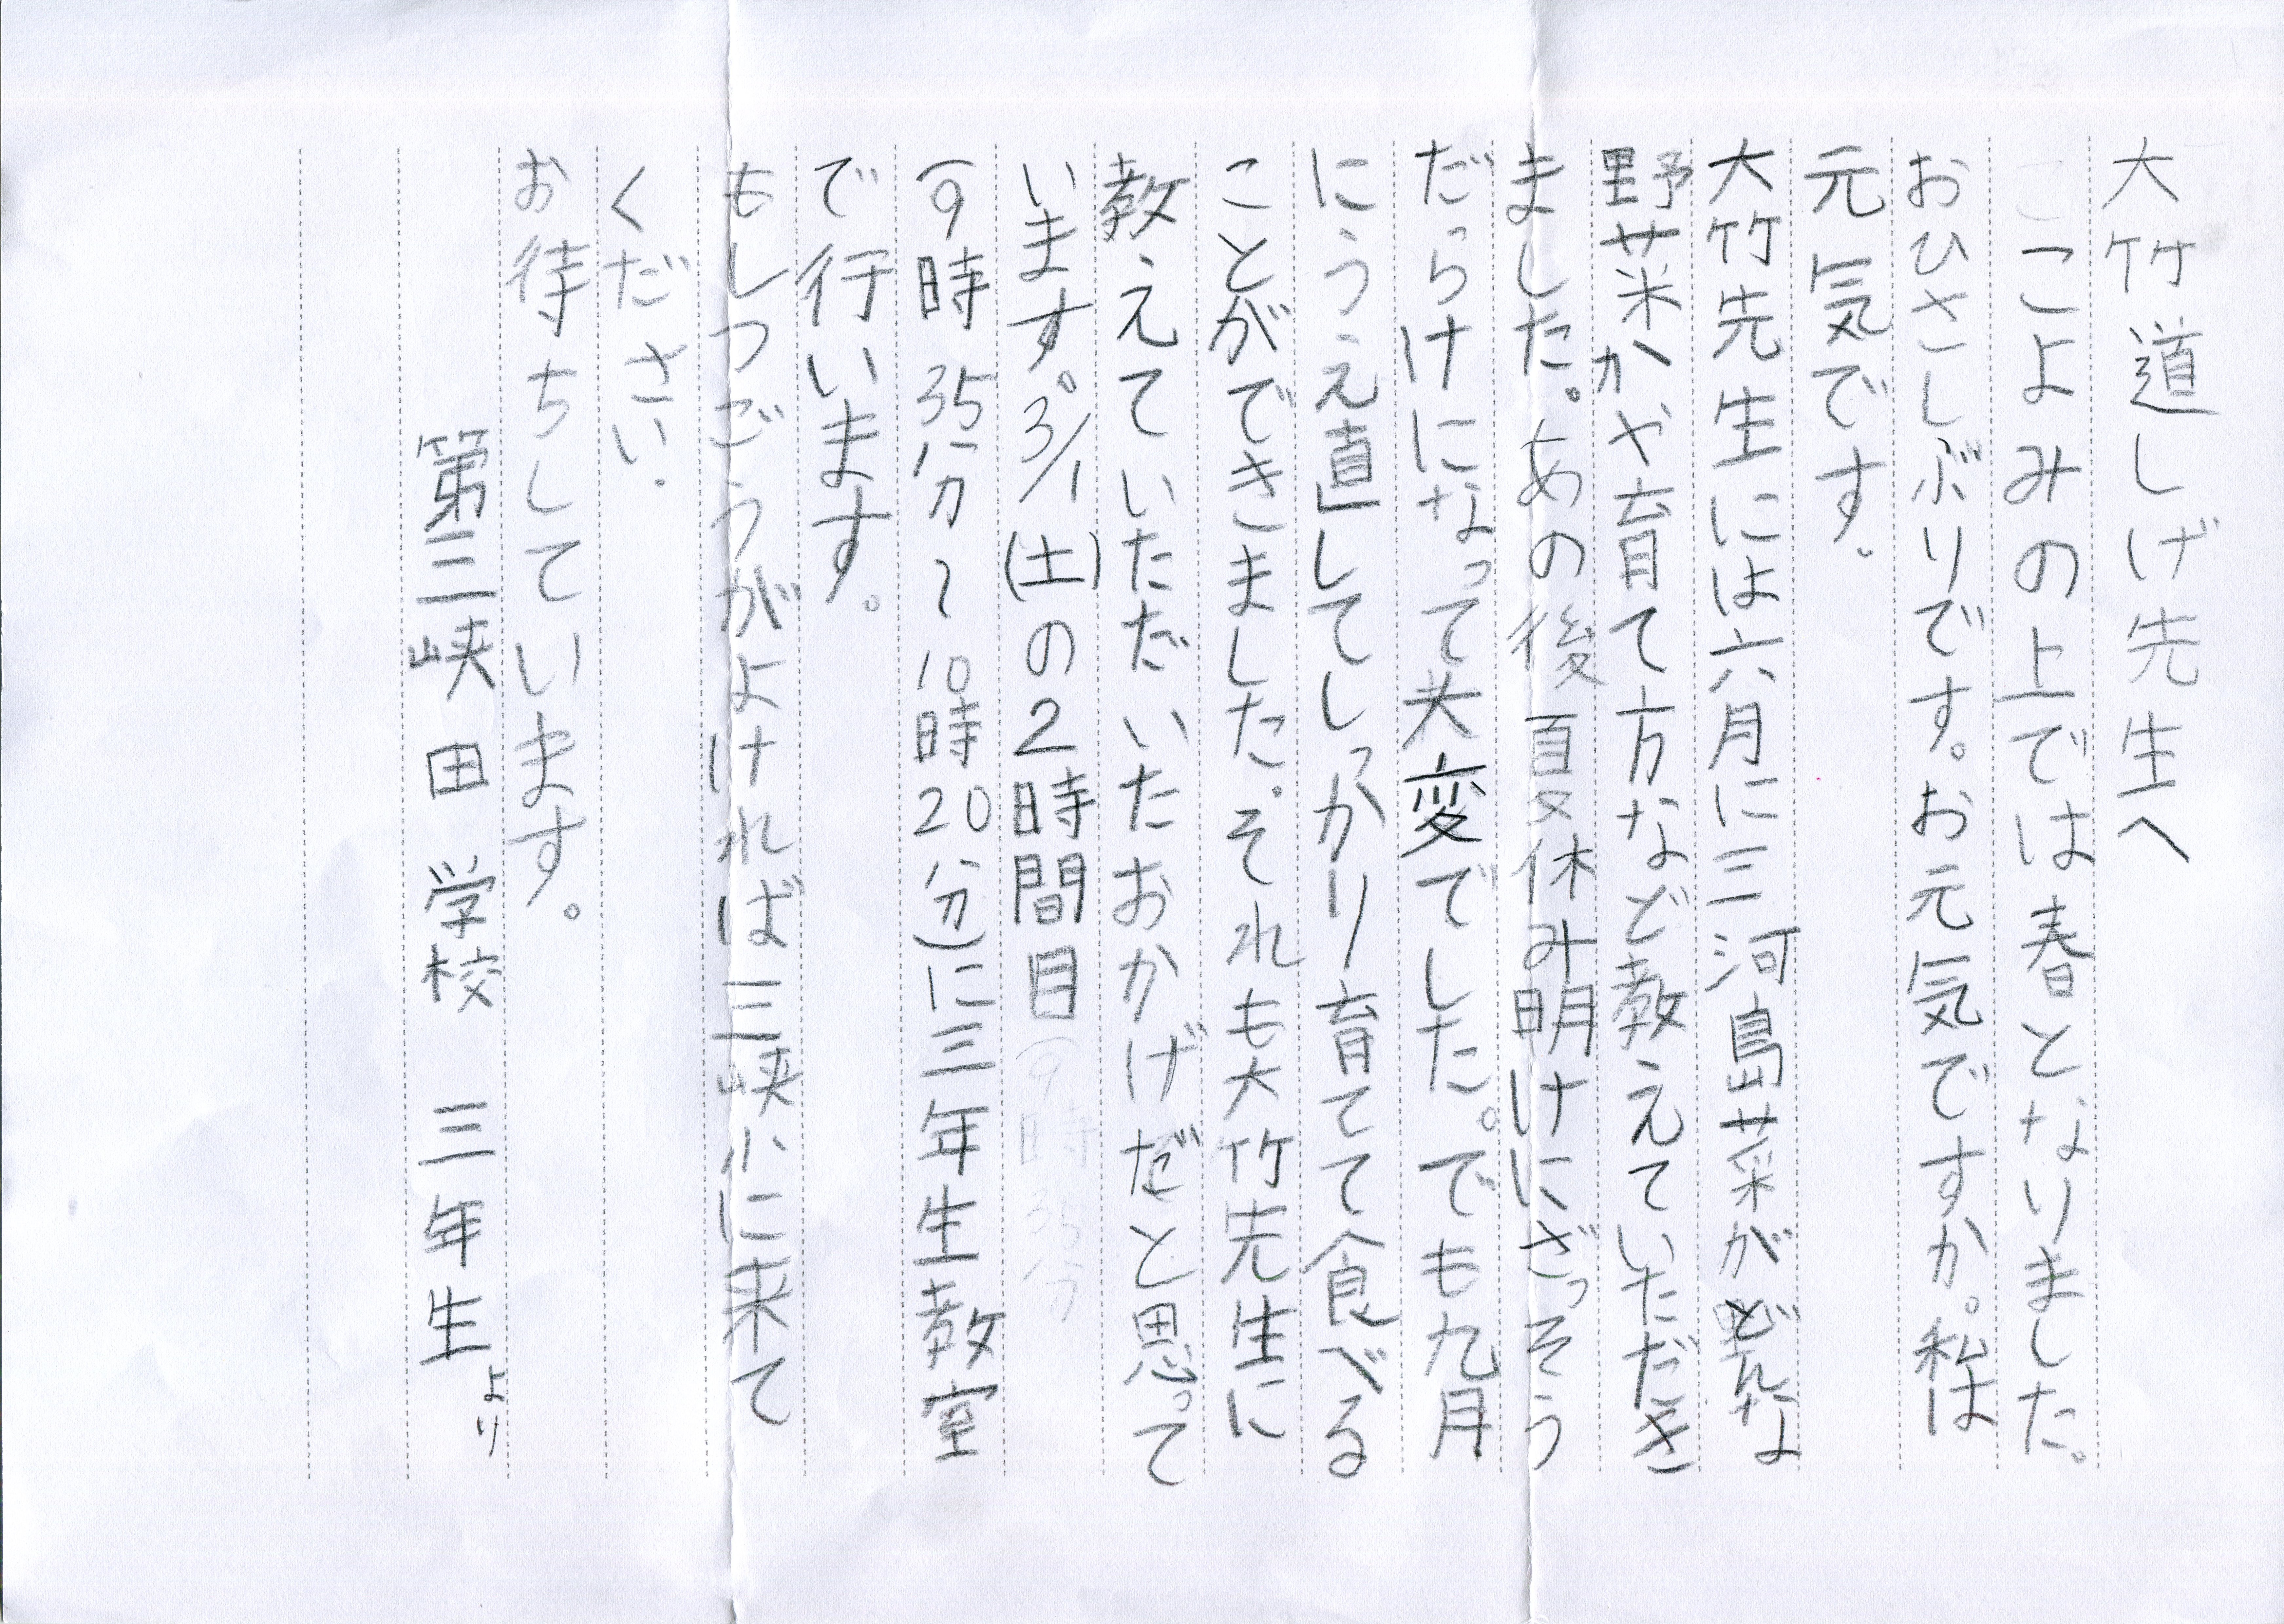 大竹道しげ先生へ
こよみの上では春となりました。
おひさしぶりです。お元気ですか。私は
元気です。
大竹先生には六月に三河島菜がどんな
野菜かや育て方など教えていただき
ました。あの後夏休み明けにざっそう
だらけになって大変でした。でも九月
にうえ直してしっかり育てて食べる
ことができました。それも大竹先生に
教えていただいたおかげだと思って
います。3/1(土)の2時間目
(9時35分～10時20分)に三年生教室
で行います。
もしつごうがよければ三峡小に来て
ください。
お待ちしています。
第三峡田学校 三年生より